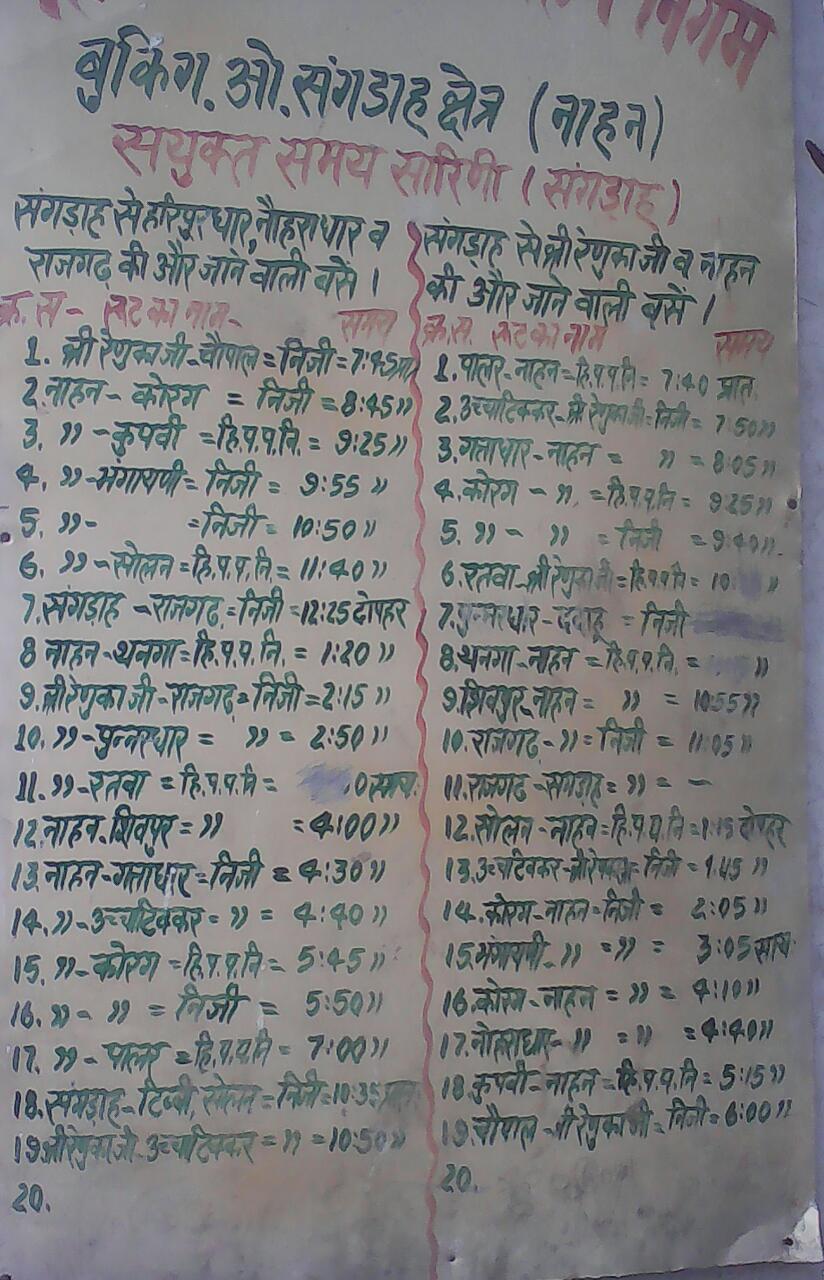 निगम
बुकिंग. ओ. संगडाह क्षेत्र (नाहन)
सयुक्त समय सारिणी (संगड़ाह)
संगड़ाह से हरिपुरधार, नौहराधार व
राजगढ़ की और जाने वाली बसें ।
क्र. स - रूट का नाम - समय
1. श्री रेणुका जी - चौपाल = निजी = 7:45 प्रा
2. नाहन - कोरग = निजी = 8:45 ,,
3. ,, - कुपवी = हि.प.प.नि. = 9:25 ,,
4. ,, - भंगायणी = निजी = 9:55 ,,
5. ,, - = निजी = 10:50 ,,
6. ,, - सोलन = हि.प.प.नि. = 11:40 ,,
7. संगड़ाह - राजगढ़ = निजी = 12:25 दोपहर
8 नाहन - थनगा = हि.प.प.नि. = 1:20 ,,
9. श्री रेणुका जी - राजगढ़ = निजी = 2:15 ,,
10. ,, - पुन्नरधार = ,, = 2:50 ,,
11. ,, - रतवा = हि.प.प.नि = 0 सायः
12. नाहन - शिवपुर = ,, = 4:00 ,,
13. नाहन - गत्ताधार = निजी = 4:30 ,,
14. ,, - उच्चाटिक्कर = ,, = 4:40 ,,
15. ,, - कोरग = हि.प.प.नि = 5:45 ,,
16. ,, - ,, = निजी = 5:50 ,,
17. ,, - पालर = हि.प.प.नि = 7:00 ,,
18. संगड़ाह - टिब्बी, सोलन = निजी = 10:35 प्रात
19. श्री रेणुका जी - उच्चाटिक्कर = ,, = 10:50 ,,
20.
संगड़ाह से श्री रेणुका जी व नाहन
की और जाने वाली बसें ।
क्र.स. रूट का नाम समय
1. पालर - नाहन = हि.प.प.नि = 7:40 प्रात
2. उच्चाटिक्कर - श्री रेणुका जी = निजी = 7:50 ,,
3. गत्ताधार - नाहन = ,, = 8:05 ,,
4. कोरग - ,, = हि.प.प.नि = 9:25 ,,
5. ,, - ,, = निजी = 9:40 ,,
6. रतवा - श्री रेणुका जी = हि.प.प.नि = 10: ,,
7. पुन्नरधार - ददाहू = निजी
8. थनगा - नाहन = हि.प.प.नि. = ,,
9. शिवपुर - नाहन = ,, = 10:55 ,,
10. राजगढ़ - ,, = निजी = 11:05 ,,
11. राजगढ़ - संगड़ाह = ,, = -
12. सोलन - नाहन = हि.प.प.नि = 1:15 दोपहर
13. उच्चाटिक्कर - श्री रेणुका = निजी = 1:45 ,,
14. कोरग - नाहन = निजी = 2:05 ,,
15. भंगायणी - ,, = ,, = 3:05 सायः
16. कोरग - नाहन = ,, = 4:10 ,,
17. नोहराधार - ,, = ,, = 4:40 ,,
18. कुपवी - नाहन = हि.प.प.नि = 5:15 ,,
19. चौपाल - श्री रेणुका जी = निजी = 6:00 ,,
20.